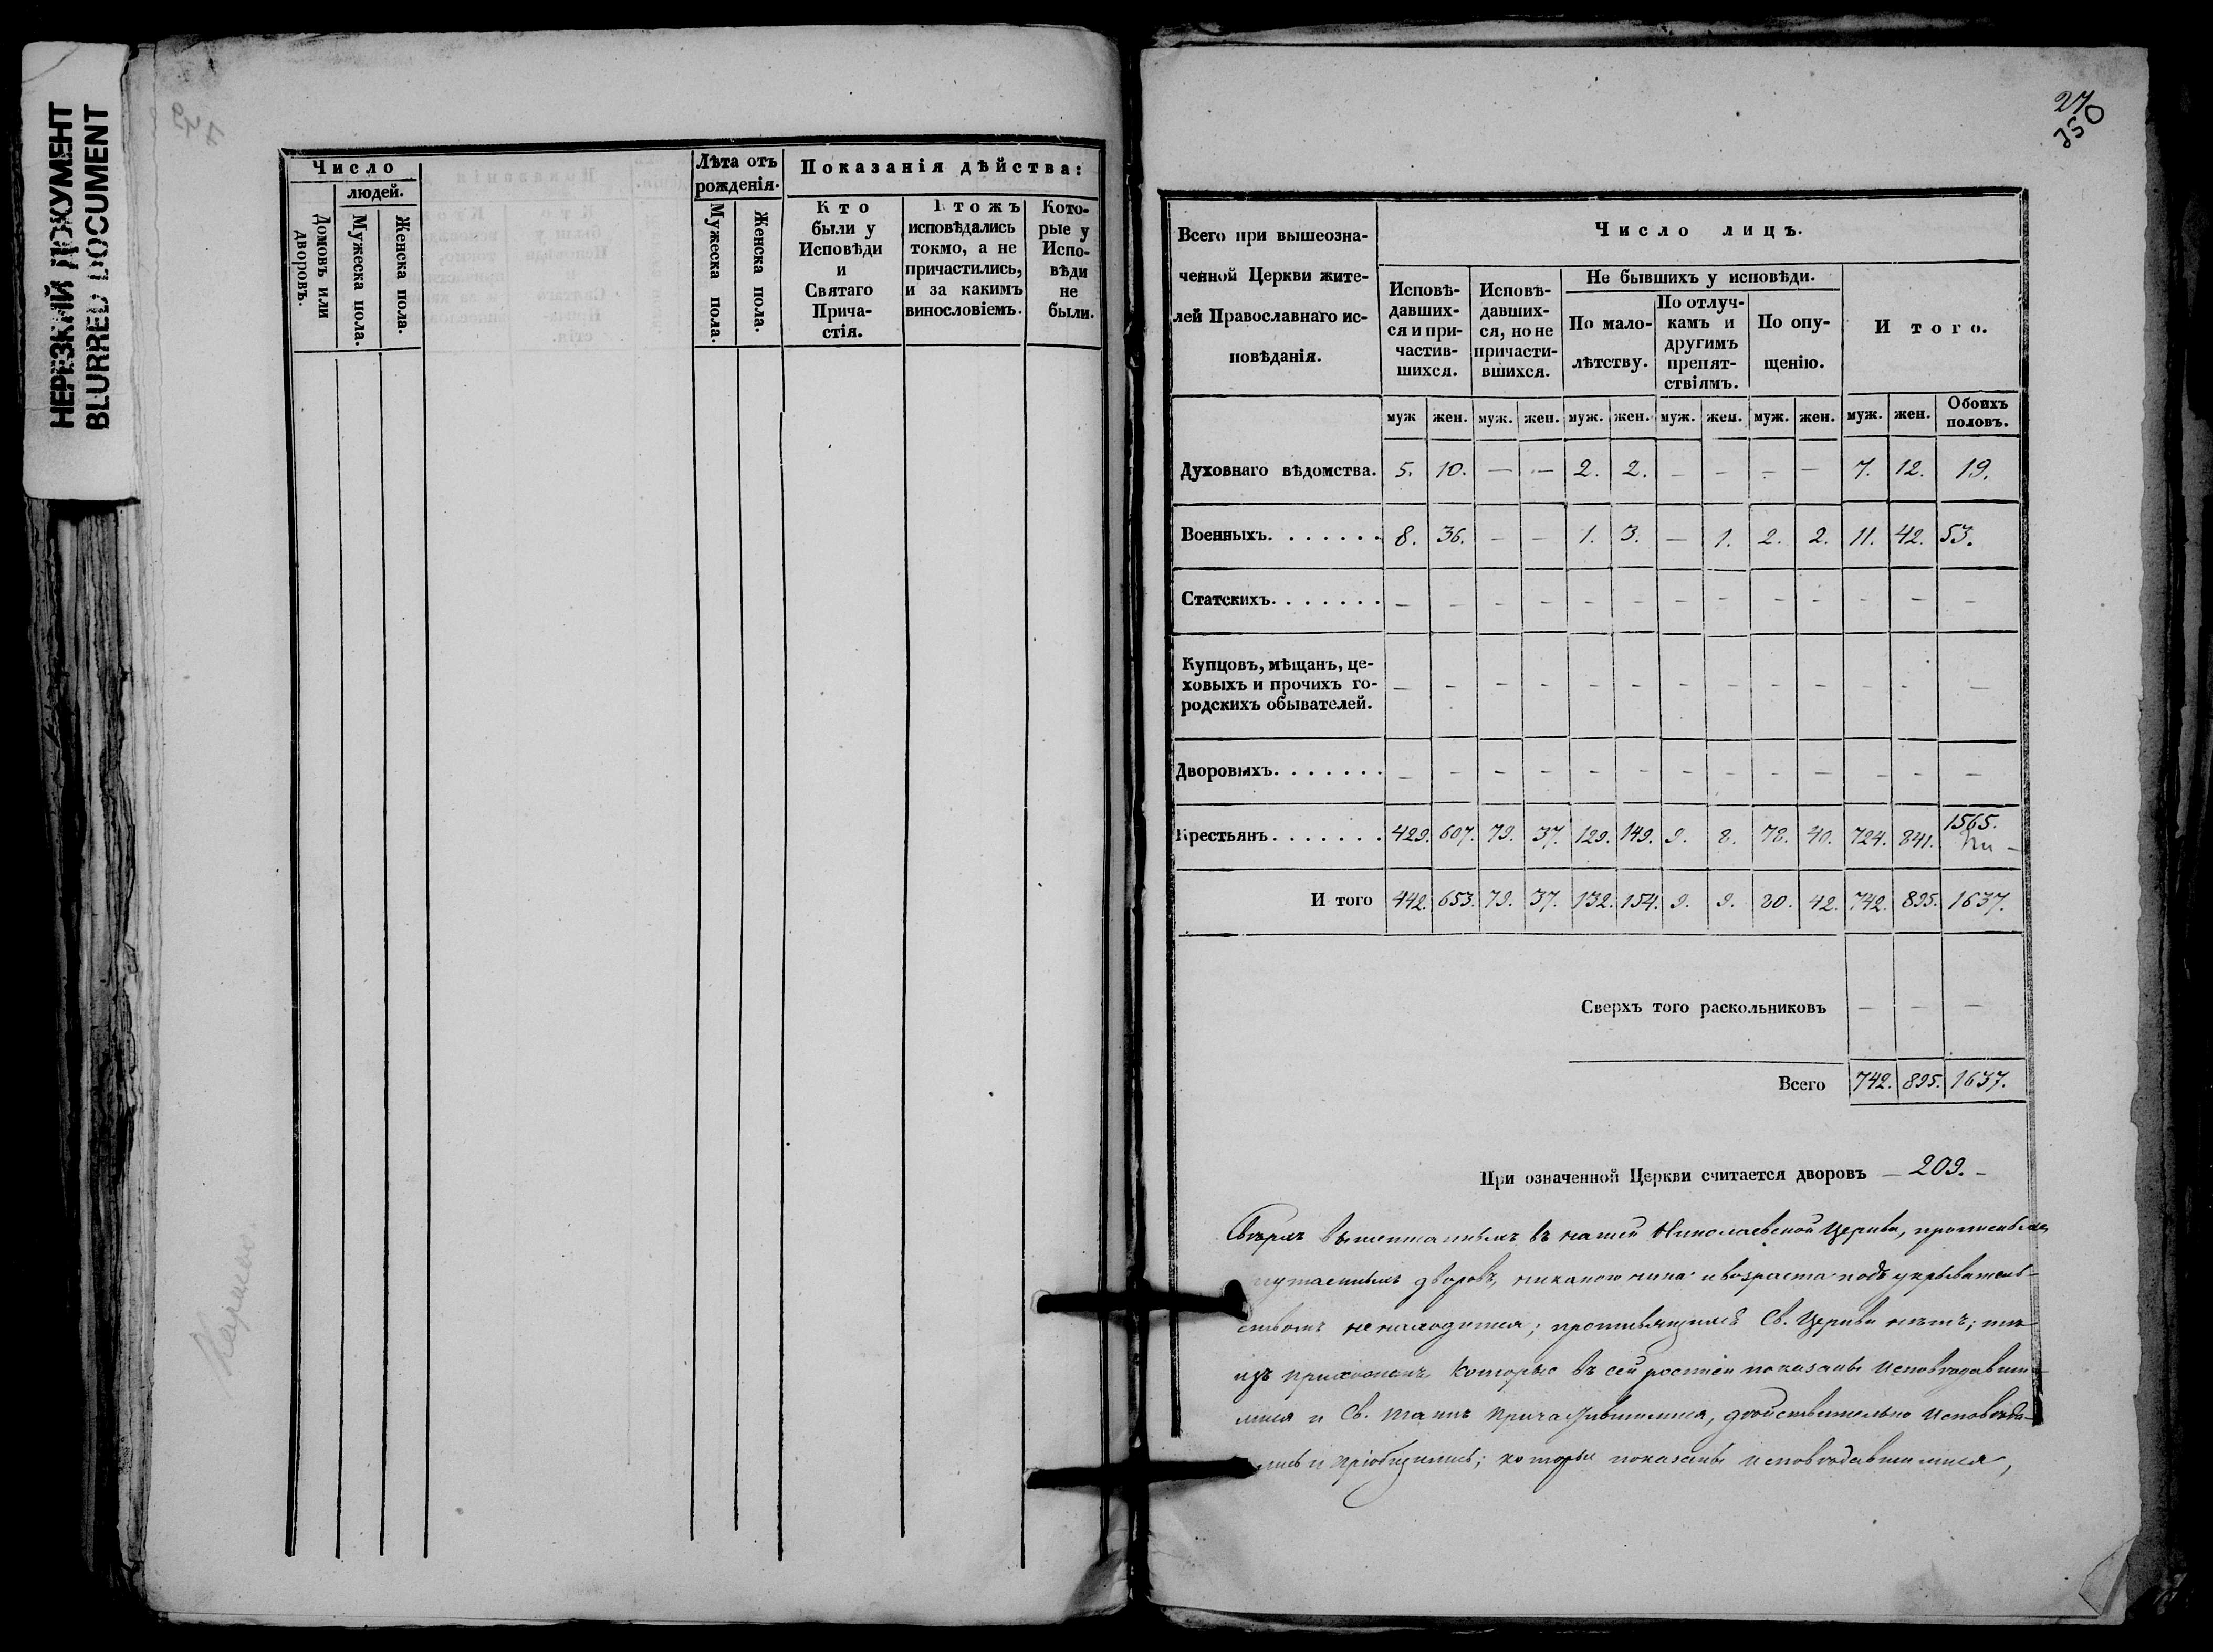 НЕРЕЗКИЙ ДОКУМЕНТ
BLURRED DOCUMENT
Число
людей.
Домовъ или дворовъ.
Мужеска пола.
Женска пола.
Лѣта отъ рожденія.
Мужеска пола.
Женска пола.
Показанія дѣйства:
Кто
были у
Исповѣди
и
Святаго
Прича-
стія.
Ктожъ
исповѣдались
токмо, а не
причастились,
и за какимъ
винословіемъ.
Кото-
рые у
Испо-
вѣди
не
были.
27
350
Всего при вышеозна-
ченной Церкви жите-
лей Православнаго ис-
повѣданія.
Число лицъ.
Исповѣ-
давших-
ся и при-
частив-
шихся.
Исповѣ-
давших-
ся, но не
причасти-
вшихся.
Не бывшихъ у исповѣди.
По мало-
лѣтству.
По отлуч-
камъ и
другимъ
препят-
ствіямъ.
По опу-
щенію.
И того.
муж жен. муж. жен. муж. жен. муж. жен. муж. жен. муж. жен. Обоихъ половъ.
Духовнаго вѣдомства. 5. 10. — — 2. 2. — — — — 7. 12. 19.
Военныхъ. . . . . . . 8. 36. — — 1. 3. — 1. 2. 2. 11. 42. 53.
Статскихъ. . . . . . . — — — — — — — — — — — — —
Купцовъ, мѣщанъ, це-
ховыхъ и прочихъ го-
родскихъ обывателей. — — — — — — — — — — — — —
Дворовыхъ. . . . . . . — — — — — — — — — — — — —
Крестьянъ. . . . . . . 429. 607. 79. 37. 129. 149. 9. 8. 78. 40. 724. 841. 1565.
И того 442. 653. 79. 37. 132. 154. 9. 9. 80. 42. 742. 895. 1637.
Сверхъ того раскольниковъ — — —
Всего 742. 895. 1637.
При означенной Церкви считается дворовъ — 209. —
Сверхъ вышеписанныхъ въ нашей Николаевской Церкви,
дворовъ, никакого чина и возраста подъ укрыватель-
ствомъ не находится; противящихся Св. Церкви нѣтъ; тѣ
изъ прихожанъ которые въ сей росписи показаны исповѣдавши-
мися и Св. Таинъ причастившимися, дѣйствительно исповѣда-
лись и пріобщились; которые показаны исповѣдавшимися,